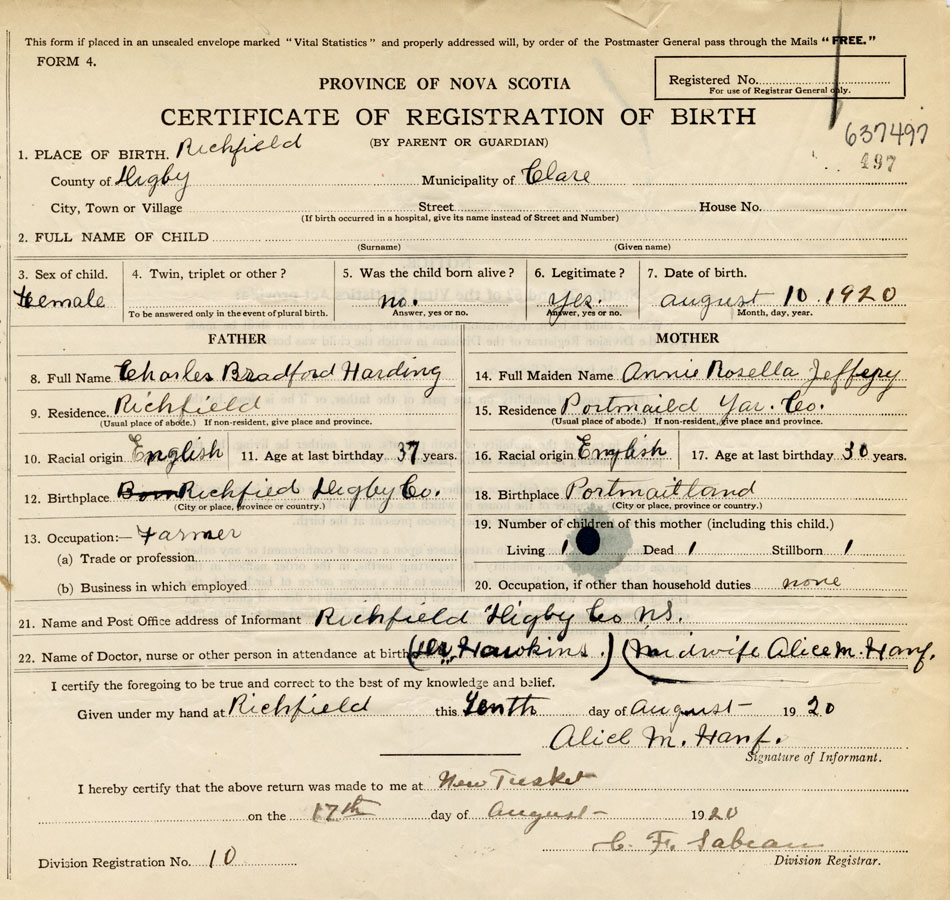 This form if placed in an unsealed envelope marked "Vital Statistics" and properly addressed will, by order of the Postmaster General pass through the Mails "FREE."
FORM 4.
PROVINCE OF NOVA SCOTIA
Registered No.
For use of Registrar General only.
CERTIFICATE OF REGISTRATION OF BIRTH
(BY PARENT OR GUARDIAN)
637497
497
1. PLACE OF BIRTH. Richfield
County of Digby Municipality of Clare
City, Town or Village Street House No.
(If birth occurred in a hospital, give its name instead of Street and Number)
2. FULL NAME OF CHILD
(Surname) (Given name)
3. Sex of child. 4. Twin, triplet or other? 5. Was the child born alive? 6. Legitimate? 7. Date of birth.
Female no. Yes. august 10. 1920
To be answered only in the event of plural birth. Answer, yes or no. Answer, yes or no. Month, day, year.
FATHER MOTHER
8. Full Name Charles Bradford Harding 14. Full Maiden Name Annie Rosella Jeffery
9. Residence. Richfield 15. Residence Portmaild Yar. Co.
(Usual place of abode.) If non-resident, give place and province. (Usual place of abode.) If non-resident, give place and province.
10. Racial origin English 11. Age at last birthday 37 years. 16. Racial origin English 17. Age at last birthday 30 years.
12. Birthplace Born Richfied Digby Co. 18. Birthplace Portmaitland
(City or place, province or country.) (City or place, province or country.)
13. Occupation:— Farmer 19. Number of children of this mother (including this child.)
(a) Trade or profession Living 1 Dead 1 Stillborn 1
(b) Business in which employed 20. Occupation, if other than household duties none
21. Name and Post Office address of Informant Richfield Digby Co NS.
22. Name of Doctor, nurse or other person in attendance at birth (Dr. Hawkins.) (Midwife Alice M. Hanf.
I certify the foregoing to be true and correct to the best of my knowledge and belief.
Given under my hand at Richfield this Tenth day of august 1920
Alice M. Hanf.
Signature of Informant.
I hereby certify that the above return was made to me at New Tusket
on the 17th day of August 1920
C. F. Sabean
Division Registration No. 10 Division Registrar.